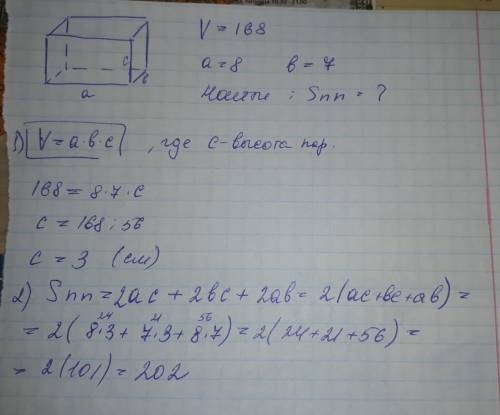 V = 168
a = 8 в = 7
Найти : Sпп = ?
c
в
a
1) V = a·в·c , где c - высота пар.
168 = 8·7·c
c = 168 : 56
c = 3 (см)
2) Sпп = 2ac + 2вc + 2aв = 2(ac+вc+aв) =
24 21 56
= 2( 8·3 + 7·3 + 8·7) = 2(24+21+56) =
= 2(101) = 202